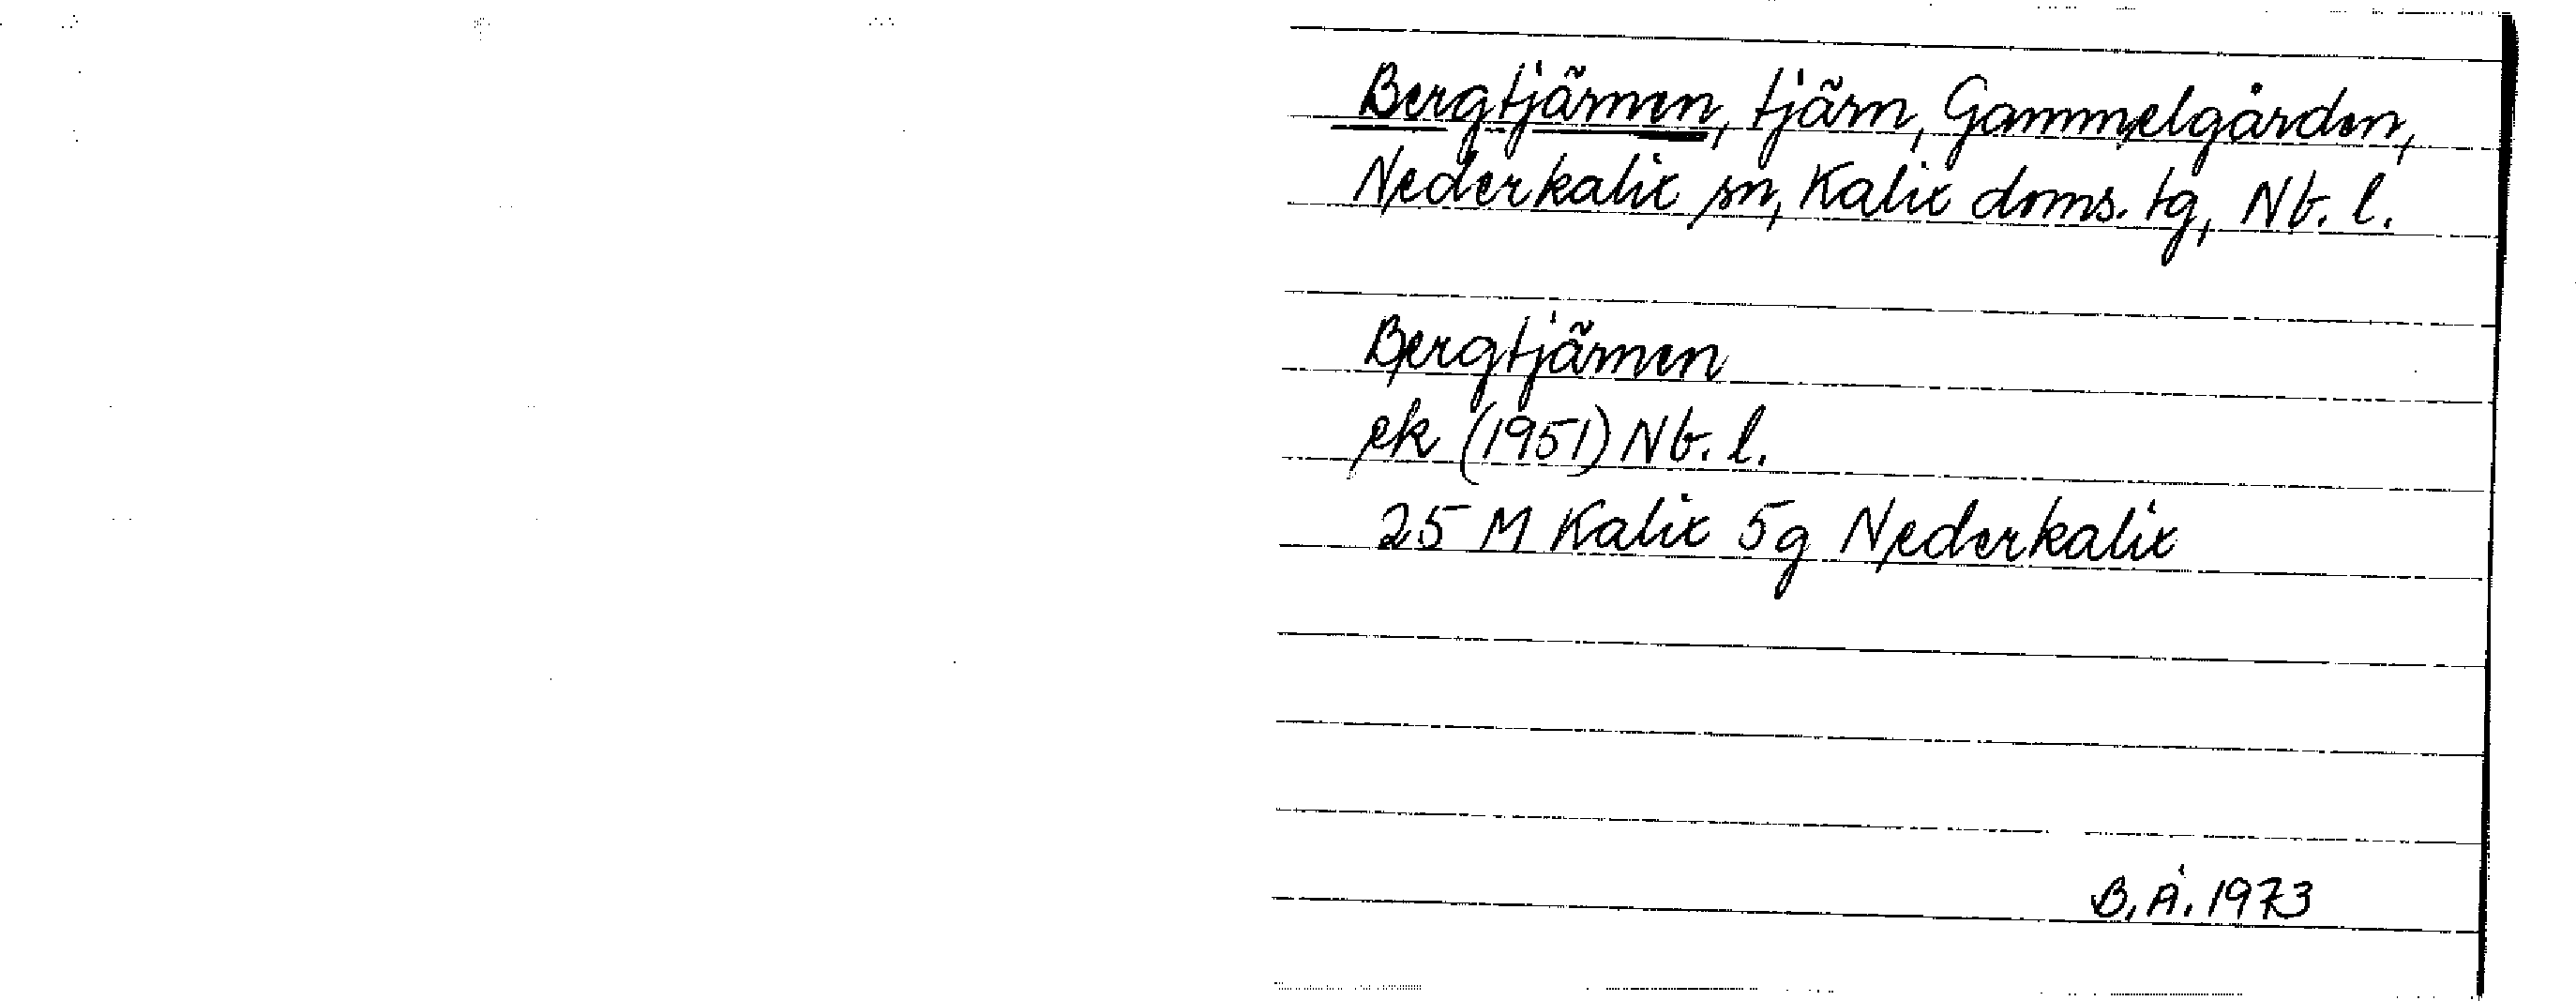 Bergtjärnen, tjärn, Gammelgården,
Nederkalix sn, Kalix doms. tg, Nb. l.
Bergtjärnen
ek (1951) Nb. l.
25 M Kalix 5g Nederkalix
B. Å. 1973